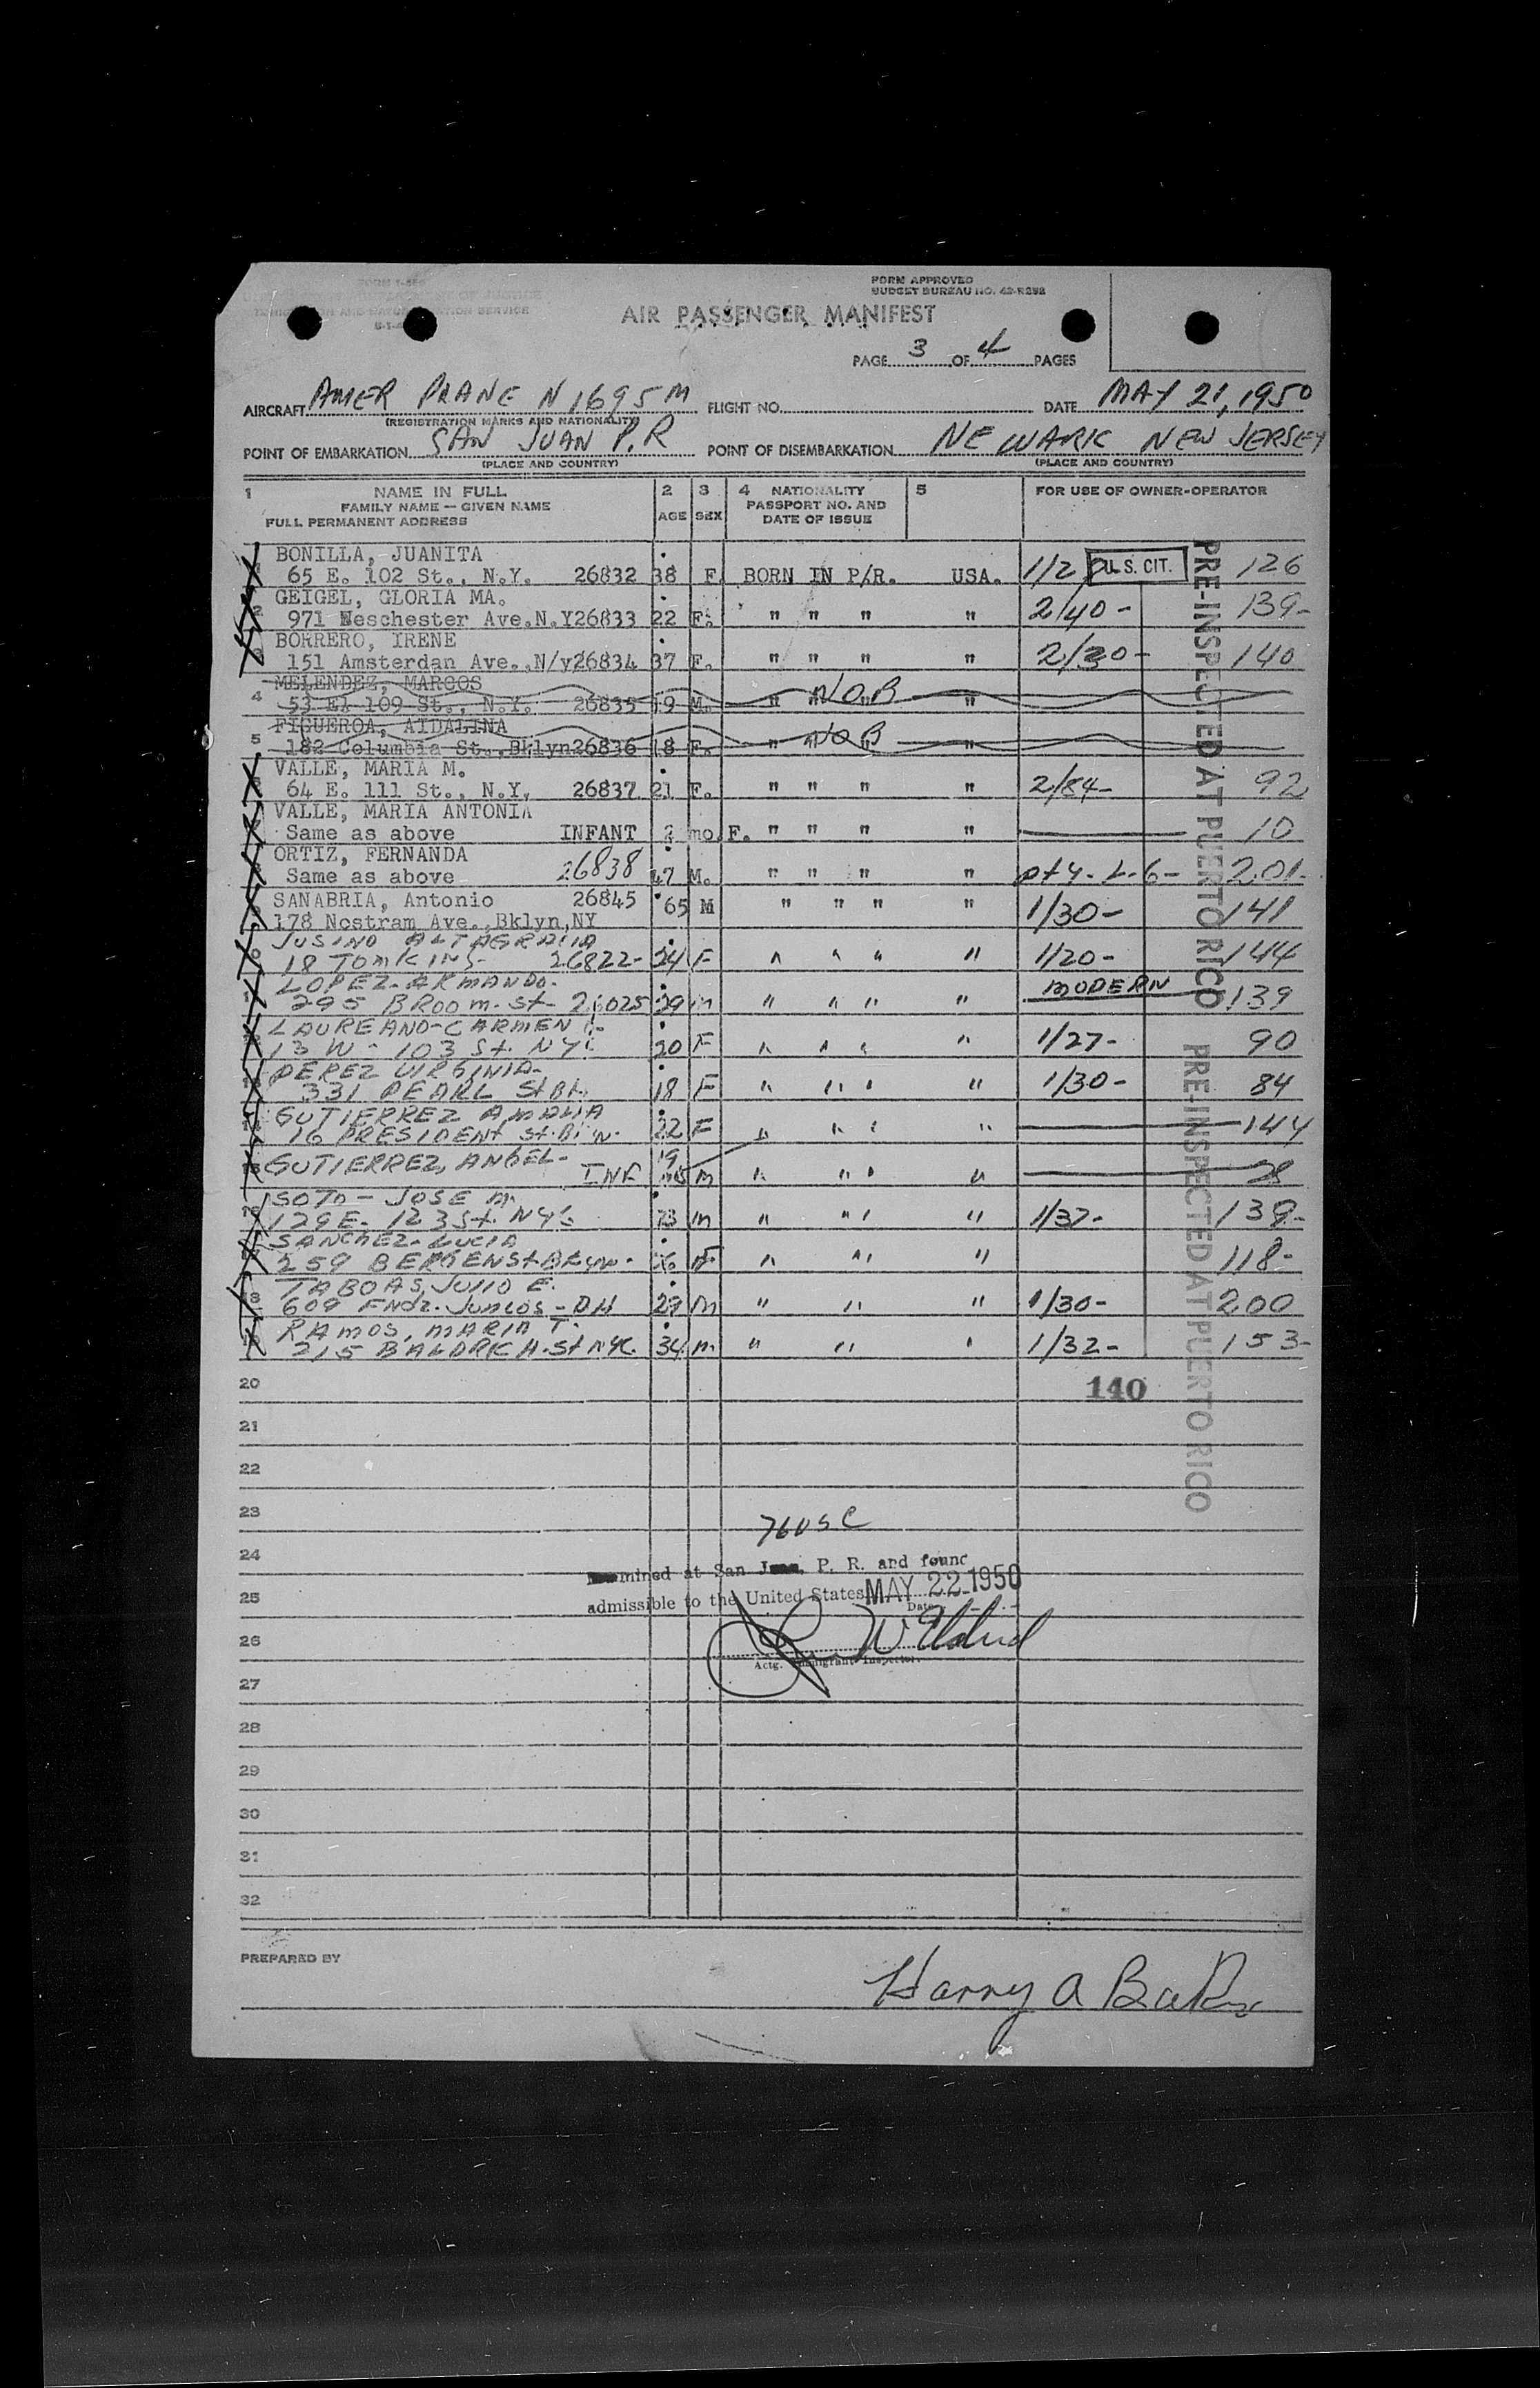 FORM APPROVED
BUDGET BUREAU NO. 43-R252
AIR PASSENGER MANIFEST
PAGE 3 OF 4 PAGES
AIRCRAFT AMER PLANE N 1695M FLIGHT NO. DATE MAY 21, 1950
(REGISTRATION MARKS AND NATIONALITY)
POINT OF EMBARKATION SAN JUAN P.R POINT OF DISEMBARKATION NEWARK NEW JERSEY
(PLACE AND COUNTRY) (PLACE AND COUNTRY)
1 NAME IN FULL 2 3 4 NATIONALITY 5 FOR USE OF OWNER-OPERATOR
FAMILY NAME — GIVEN NAME AGE SEX PASSPORT NO. AND
FULL PERMANENT ADDRESS DATE OF ISSUE
BONILLA, JUANITA
65 E. 102 St., N.Y. 26832 38 F. BORN IN P/R. USA. 1/2 U.S. CIT. 126
GEIGEL, GLORIA MA.
2 971 Weschester Ave.N.Y26833 22 F. " " " " 2/40- 139-
BORRERO, IRENE
151 Amsterdan Ave.,N/y26834 37 F. " " " " 2/30- 140
MELENDEZ, MARCOS
4 53 E. 109 St., N.Y. 26835 19 M. " " " NOB "
FIGUEROA, AIDALINA
5 182 Columbia St.,Bklyn26836 18 F. " " " NOB "
VALLE, MARIA M.
64 E. 111 St., N.Y. 26837 21 F. " " " " 2/84- 92
VALLE, MARIA ANTONIA
Same as above INFANT 2 mo. F. " " " " 10
ORTIZ, FERNANDA
Same as above 26838 47 M. " " " " 201-
SANABRIA, Antonio 26845 65 M " " " "
178 Nostram Ave.,Bklyn,NY 1/30- 141
JUSINO ALTAGRACIA
18 TOMKINS- 26822- 24 F " " " " 1/20- 144
LOPEZ-ARMANDO. MODERN
295 BROOM. St- 26025 29 m " " " " 139
LAUREANO-CARMEN
13 W- 103 St. NYC 20 F " " " " 1/27- 90
PEREZ VIRGINIA-
331 PEARL St 18 F " " " " 1/30- 84
GUTIERREZ AMALIA
16 PRESIDENT St. 22 F " " " " 144
GUTIERREZ, ANGEL- INF 19 m " " " " 28
SOTO - JOSE M.
129 E. 123 St. NYC 73 m " " " " 1/37- 139-
SANCHEZ-LUCIA
259 BERGEN St 56 F " " " " 118-
18 TABOAS, JULIO E.
609 FNDZ. JUNCOS- 29 m " " " 1/30- 200
RAMOS, MARIA T.
215 BALDRICH. St NYC. 34 m. " " " 1/32- 153-
20 140
21
22
23 76 USC
24
Examined at San Juan, P. R. and found
25 admissible to the United States MAY 22 1950
Date
26
Actg. Immigrant Inspector.
27
28
29
30
31
32
PRE-INSPECTED AT PUERTO RICO PRE-INSPECTED AT PUERTO RICO
PREPARED BY
Harry A Baker